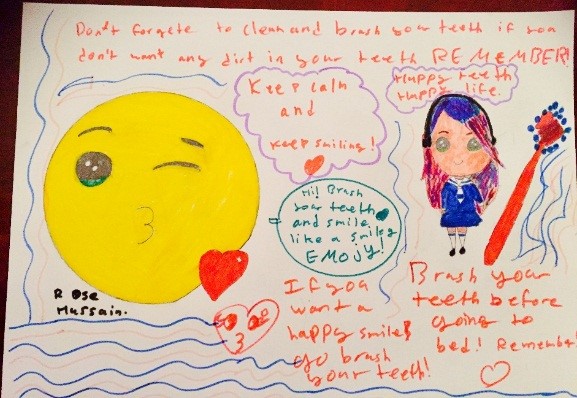 Don't forgete to clean and brash your teeth if you
don't want any dirt in your teeth REMEMBER!
Keep calm
and
keep smiling!
Happy teeth
Happy life.
Hi! Brash
your teeth
and smile
like a smiley
EMOJY!
Rose
Hussain.
If you
want a
happy smile
go brash
your teeth!
Brash your
teeth before
going to
bed! Remember